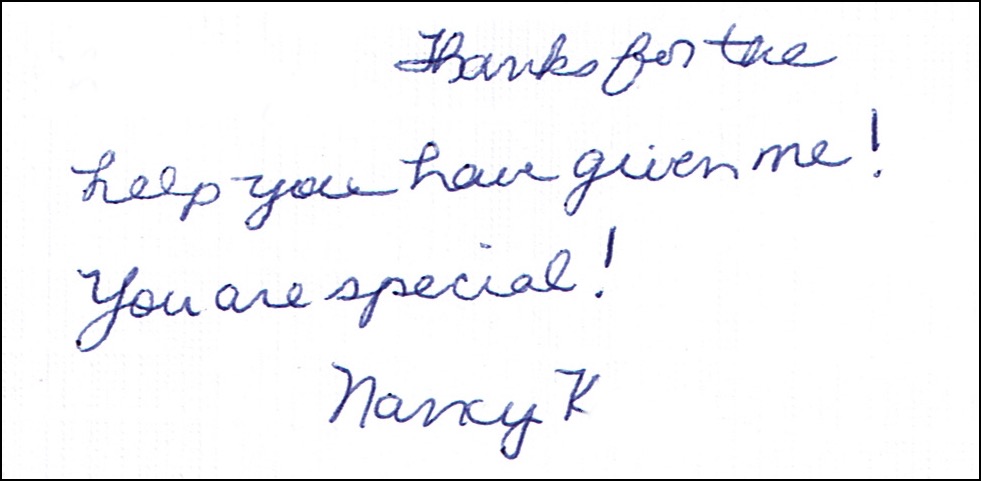 Thanks for the
help you have given me!
You are special!
Nancy K